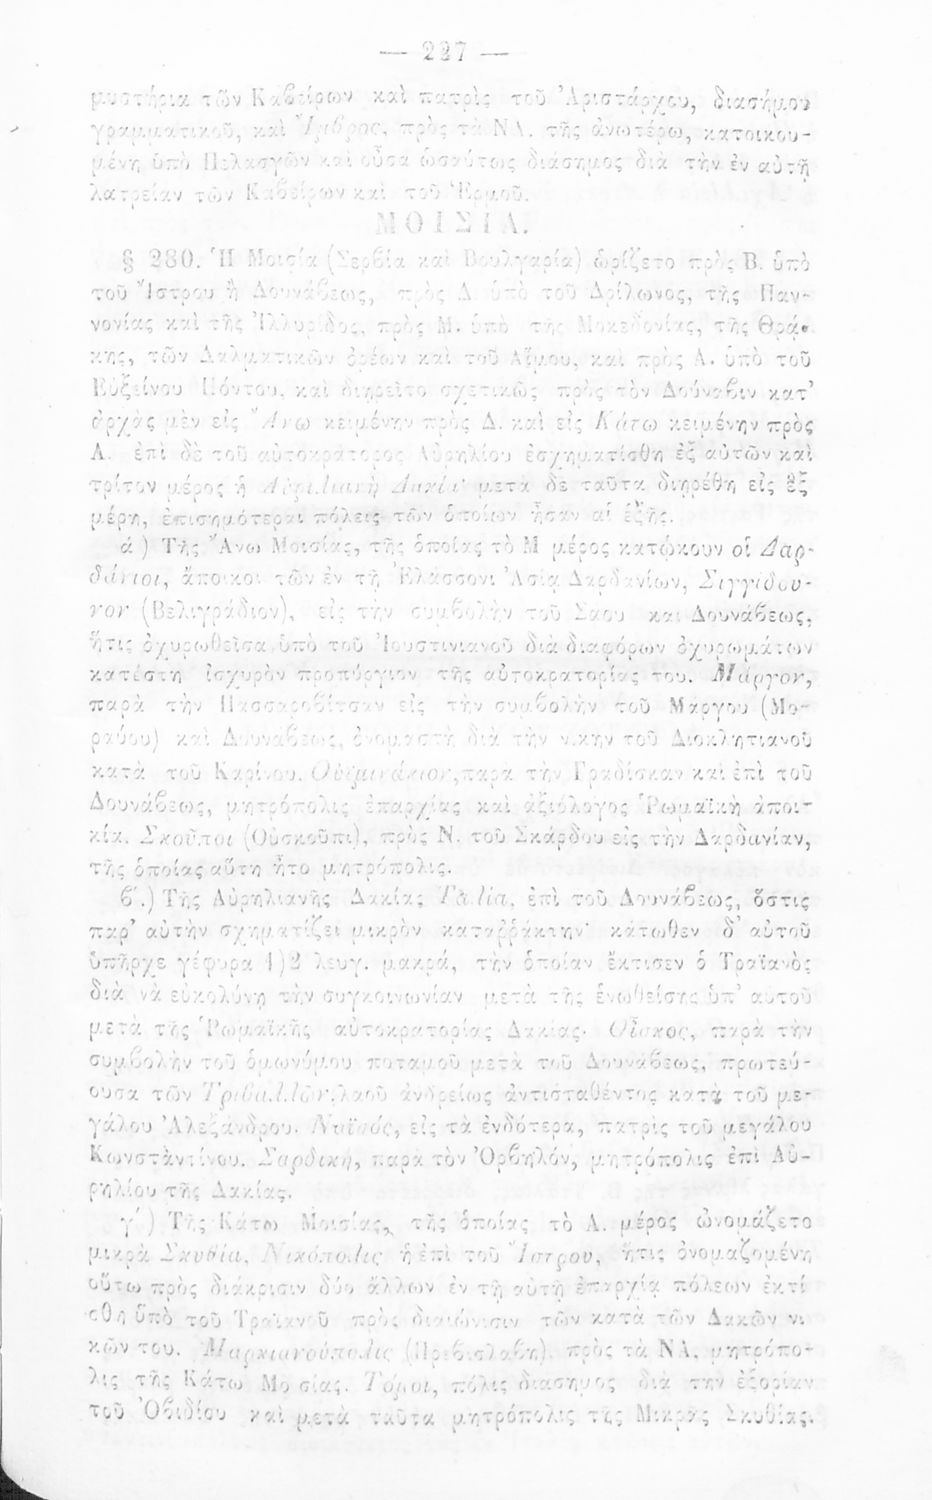 — 227 —
μυστήρια τῶν Καβείρων καὶ πατρὶς τοῦ Ἀριστάρχου, διασήμου
γραμματικοῦ, καὶ Ἴμβρος, πρὸς τὰ ΝΑ. τῆς ἀνωτέρω, κατοικου-
μένη ὑπὸ Πελασγῶν καὶ οὖσα ὡσαύτως διάσημος διὰ τὴν ἐν αὐτῇ
λατρείαν τῶν Καβείρων καὶ τοῦ Ἑρμοῦ.
ΜΟΙΣΙΑ.
§ 280. Ἡ Μοισία (Σερβία καὶ Βουλγαρία) ὡρίζετο πρὸς Β. ὑπὸ
τοῦ Ἴστρου ἢ Δουνάβεως, πρὸς Δ. ὑπὸ τοῦ Δρίλωνος, τῆς Παν-
νονίας καὶ τῆς Ἰλλυρίδος, πρὸς Μ. ὑπὸ τῆς Μακεδονίας, τῆς Θρᾴ-
κης, τῶν Δαλματικῶν ὀρέων καὶ τοῦ Αἵμου, καὶ πρὸς Α. ὑπὸ τοῦ
Εὐξείνου Πόντου, καὶ διῃρεῖτο σχετικῶς πρὸς τὸν Δούναβιν κατ’
ἀρχὰς μὲν εἰς Ἄνω κειμένην πρὸς Δ. καὶ εἰς Κάτω κειμένην πρὸς
Α. ἐπὶ δὲ τοῦ αὐτοκράτορος Αὐρηλίου ἐσχηματίσθη ἐξ αὐτῶν καὶ
τρίτον μέρος ἡ Αὐρηλιανὴ Δακία· μετὰ δὲ ταῦτα διῃρέθη εἰς ἓξ
μέρη, ἐπισημότεραι πόλεις τῶν ὁποίων ἦσαν αἱ ἑξῆς.
ά) Τῆς Ἄνω Μοισίας, τῆς ὁποίας τὸ Μ μέρος κατῴκουν οἱ Δαρ-
δάνιοι, ἄποικοι τῶν ἐν τῇ Ἐλάσσονι Ἀσίᾳ Δαρδανίων, Σιγγίδου-
νον (Βελιγράδιον), εἰς τὴν συμβολὴν τοῦ Σάου καὶ Δουνάβεως,
ἥτις ὀχυρωθεῖσα ὑπὸ τοῦ Ἰουστινιανοῦ διὰ διαφόρων ὀχυρωμάτων
κατέστη ἰσχυρὸν προπύργιον τῆς αὐτοκρατορίας του. Μάργον,
παρὰ τὴν Πασσαροβίτσαν εἰς τὴν συμβολὴν τοῦ Μάργου (Μο-
ραύου) καὶ Δουνάβεως, ὀνομαστὴ διὰ τὴν νίκην τοῦ Διοκλητιανοῦ
κατὰ τοῦ Καρίνου. Οὐϊμινάκιον, παρὰ τὴν Γραδίσκαν καὶ ἐπὶ τοῦ
Δουνάβεως, μητρόπολις ἐπαρχίας καὶ ἀξιόλογος Ῥωμαϊκὴ ἀποι-
κία. Σκοῦποι (Οὐσκοῦπι), πρὸς Ν. τοῦ Σκάρδου εἰς τὴν Δαρδανίαν,
τῆς ὁποίας αὕτη ἦτο μητρόπολις.
β΄.) Τῆς Αὐρηλιανῆς Δακίας ἐπὶ τοῦ Δουνάβεως, ὅστις
παρ’ αὐτὴν σχηματίζει μικρὸν καταῤῥάκτην· κάτωθεν δ’ αὐτοῦ
ὑπῆρχε γέφυρα 1)2 λευγ. μακρά, τὴν ὁποίαν ἔκτισεν ὁ Τραϊανὸς
διὰ νὰ εὐκολύνῃ τὴν συγκοινωνίαν μετὰ τῆς ἑνωθείσης ὑπ’ αὐτοῦ
μετὰ τῆς Ῥωμαϊκῆς αὐτοκρατορίας Δακίας· Οἶσκος, παρὰ τὴν
συμβολὴν τοῦ ὁμωνύμου ποταμοῦ μετὰ τοῦ Δουνάβεως, πρωτεύ-
ουσα τῶν Τριβαλλῶν, λαοῦ ἀνδρείως ἀντισταθέντος κατὰ τοῦ με-
γάλου Ἀλεξάνδρου. Ναϊσός, εἰς τὰ ἐνδότερα, πατρὶς τοῦ μεγάλου
Κωνσταντίνου. Σαρδική, παρὰ τὸν Ὀρβηλόν, μητρόπολις ἐπὶ Αὐ-
ρηλίου τῆς Δακίας.
γ΄) Τῆς Κάτω Μοισίας, τῆς ὁποίας τὸ Α. μέρος ὠνομάζετο
μικρὰ Σκυθία, Νικόπολις ἡ ἐπὶ τοῦ Ἴστρου, ἥτις ὀνομαζομένη
οὕτω πρὸς διάκρισιν δύο ἄλλων ἐν τῇ αὐτῇ ἐπαρχίᾳ πόλεων ἐκτί
σθη ὑπὸ τοῦ Τραϊανοῦ πρὸς διαιώνισιν τῶν κατὰ τῶν Δακῶν νι-
κῶν του. Μαρκιανούπολις (Πρεβισλάβη), πρὸς τὰ ΝΑ. μητρόπο-
λις τῆς Κάτω Μοισίας. Τόμοι, πόλις διάσημος διὰ τὴν ἐξορίαν
τοῦ Ὀβιδίου καὶ μετὰ ταῦτα μητρόπολις τῆς Μικρᾶς Σκυθίας.